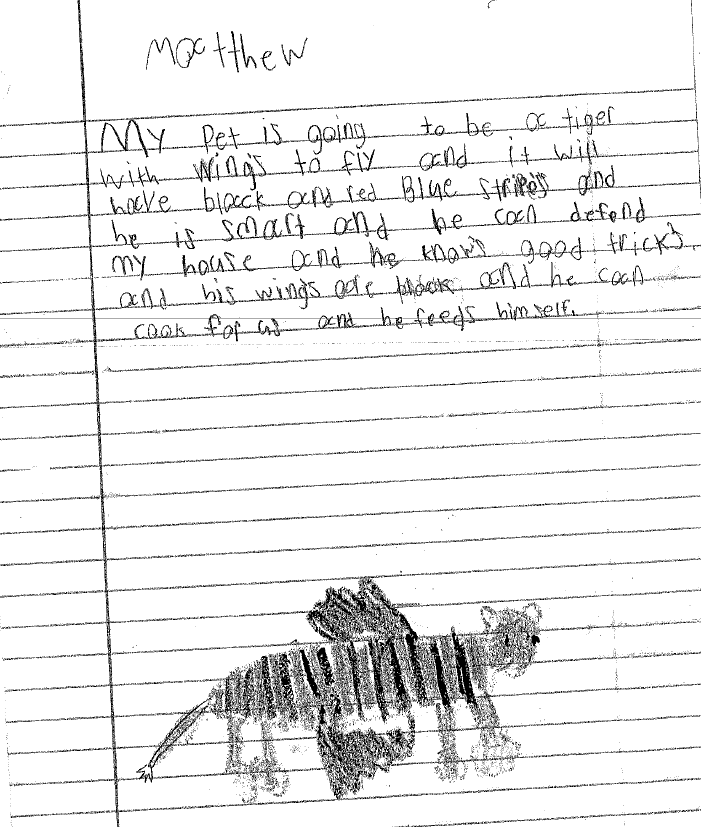 Matthew
My Pet is going to be a tiger
with wings to fly and it will
have black and red Blue stripes and
he is smart and he can defend
my house and he knows good tricks.
and his wings are black and he can
cook for us and he feeds himself.